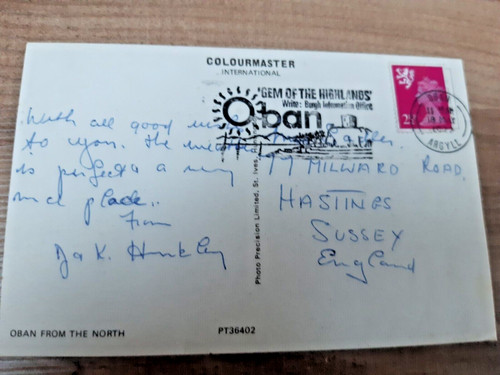 COLOURMASTER
INTERNATIONAL
'GEM OF THE HIGHLANDS'
Write: Burgh Information Office
Oban
ARGYLL
With all good
to you. The
is perfect & a very
nice place..
From
K. Hinkley
77 MILWARD ROAD.
HASTINGS
SUSSEX
England
Photo Precision Limited, St. Ives,
OBAN FROM THE NORTH
PT36402